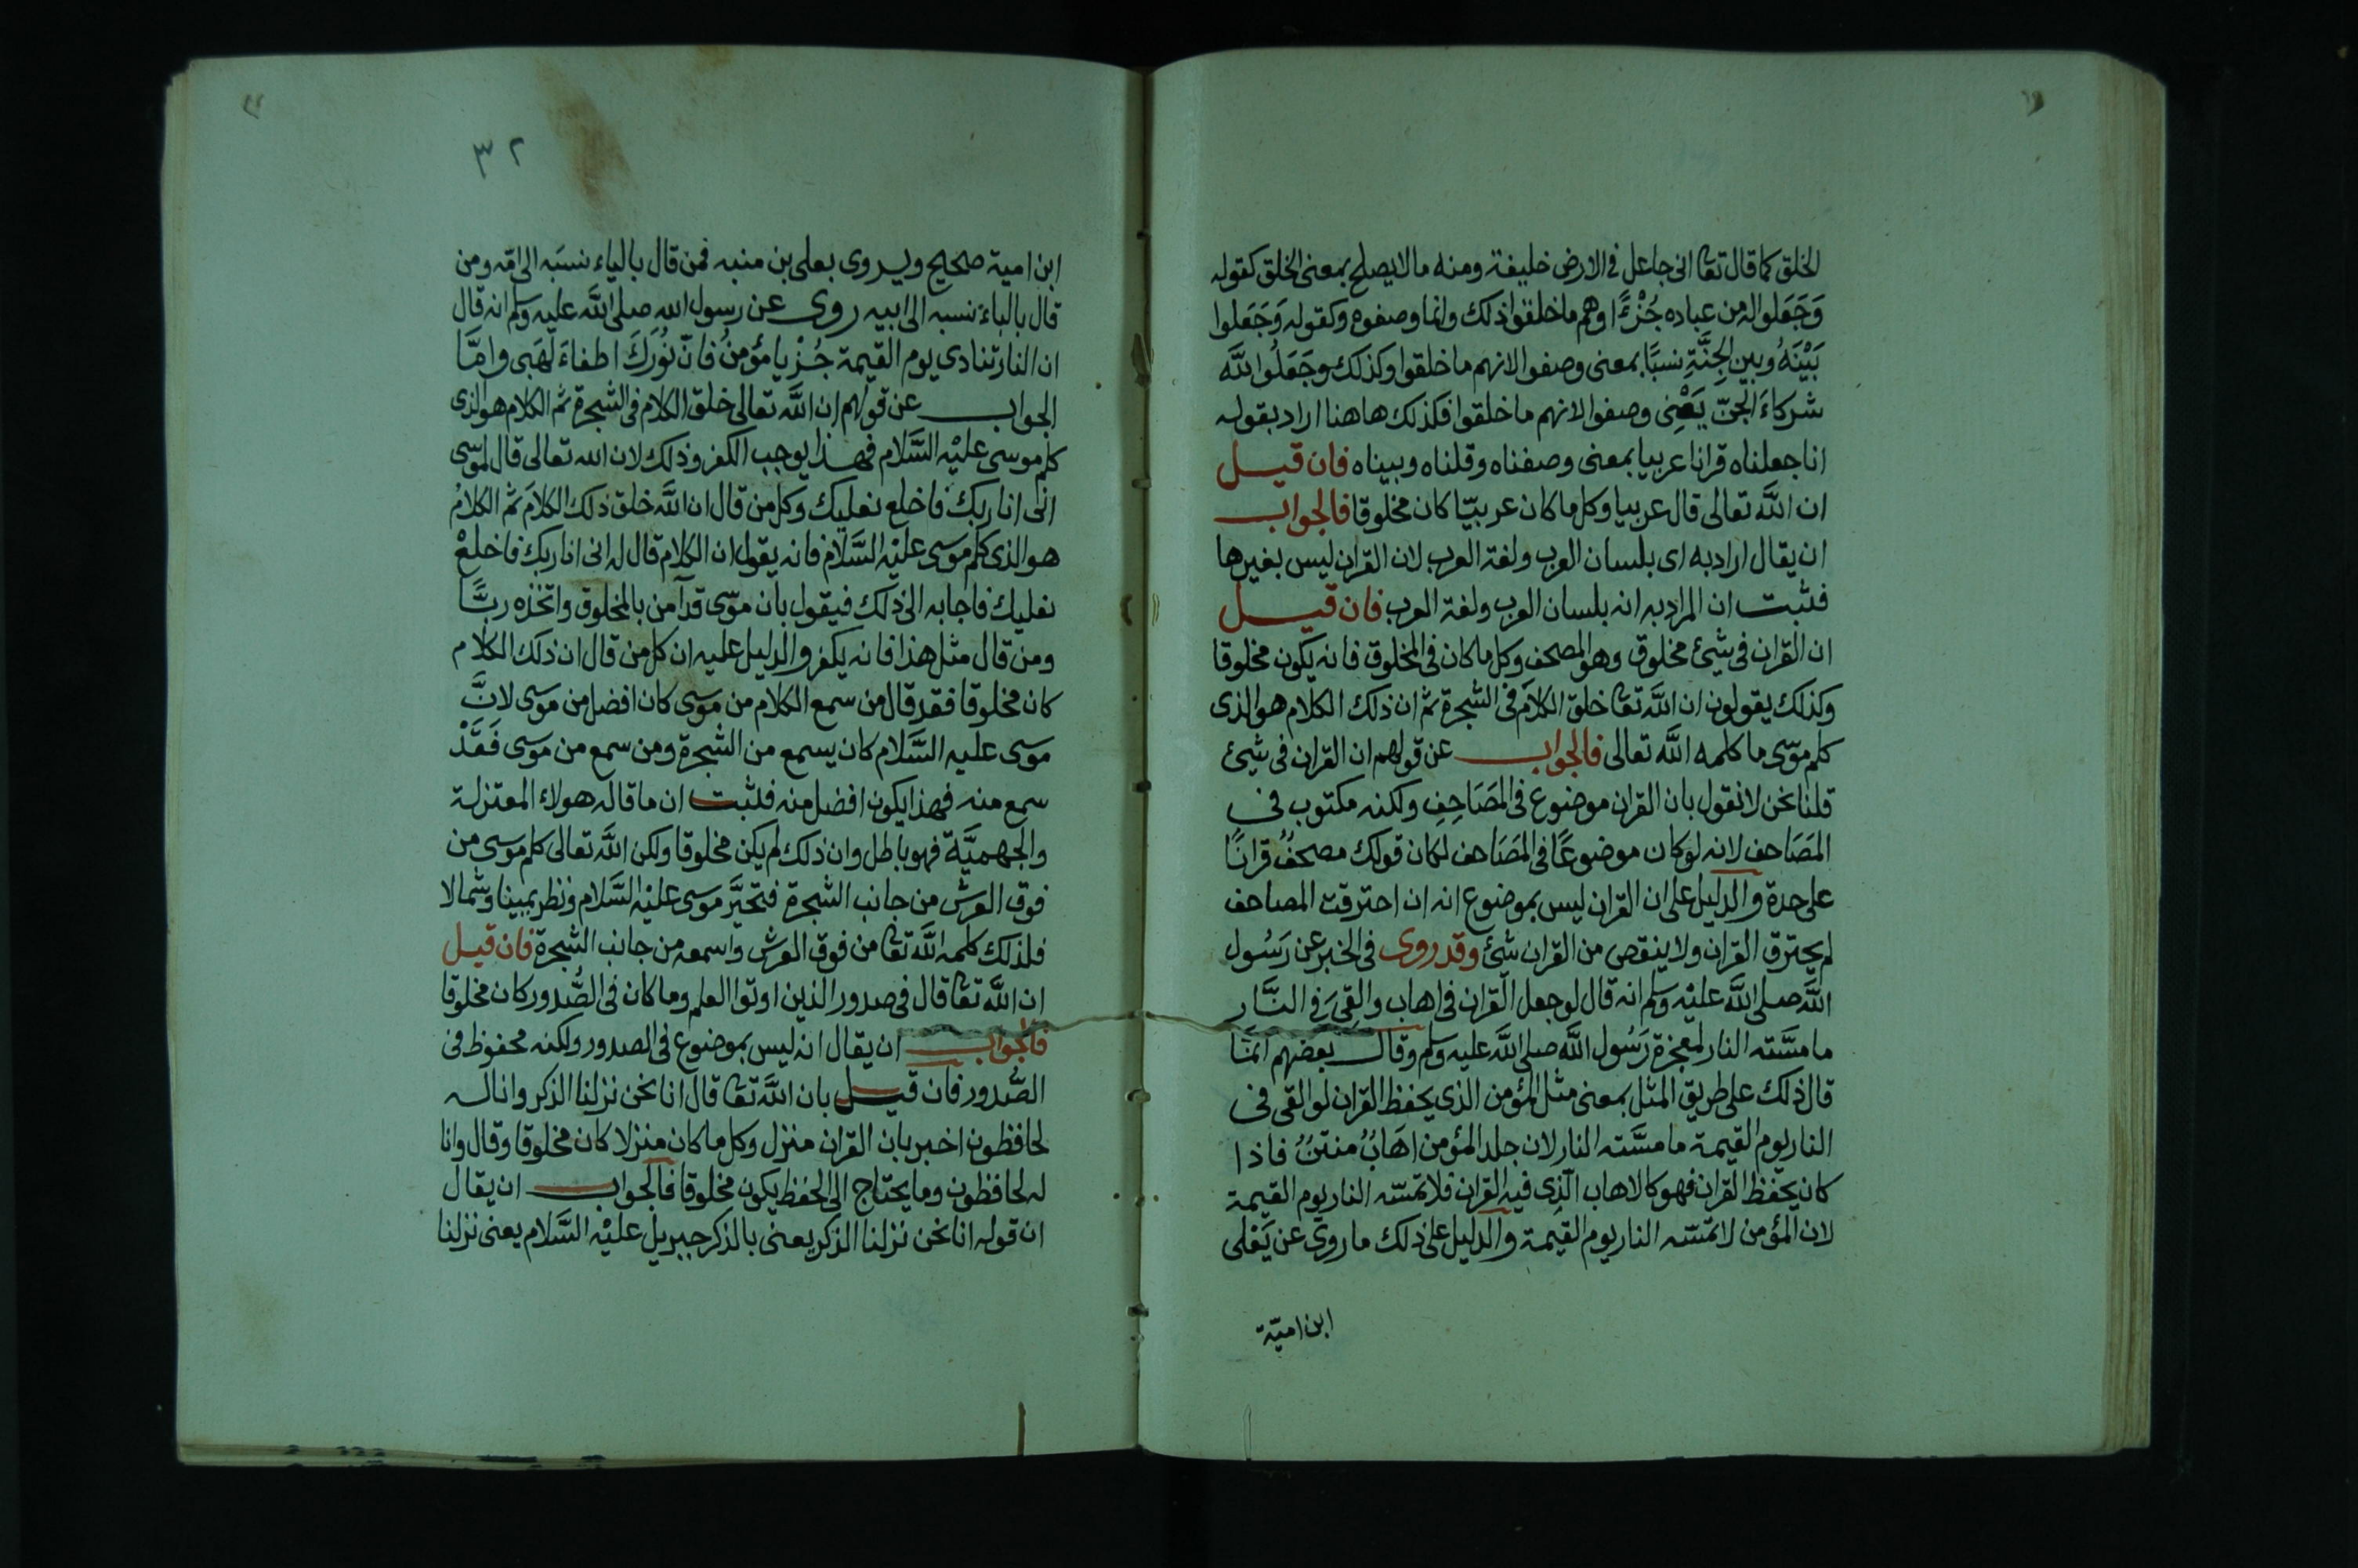 الخلق كما قال تعا انى جاعل فى الارض خليفة ومنه ما لايصلح بمعنى الخلق كقوله
وَجَعَلوا له من عباده جُزْءًا وهم ما خلقوا ذلك وانما وصفوه وكقوله وَجَعَلوا
بَيْنَهُ وبين الجِنَّةِ نسبًا بمعنى وصفوا لانهم ما خلقوا وكذلك وجَعَلُوا لله
شركاءَ الجنّ يَعْنِى وصفوا لانهم ما خلقوا فكذلك هاهنا اراد بقوله
انا جعلناه قرانا عربيا بمعنى وصفناه وقلناه وبيناه فان قيل
ان اللّٰه تعالى قال عربيا وكل ما كان عربيّا كان مخلوقا فالجواب
ان يقال اراد به اى بلسان العرب ولغة العرب لان القران ليس بغيرها
فثبت ان المراد به انه بلسان العرب ولغة العرب فان قيل
ان القران فى شئ مخلوق وهو المصحف وكل ما كان فى المخلوق فانه يكون مخلوقا
وكذلك يقولون ان اللّٰه تعا خلق الكلاَم فى الشجرة ثم ان ذلك الكلام هو الذى
كلم موسى ما كلمه اللّٰه تعالى فالجواب عن قولهم ان القران فى شئ
قلنا نحن لا نقول بان القران موضوع فى المَصَاحِفِ ولكنه مكتوب فى
المَصَاحف لانه لو كان موضوعًا فى المَصَاحف لكان قولك مصحفُ قرانًا
على حدة والدليل على ان القران ليس بموضوع انه ان احترقت المصاحف
لم يحترق القران ولا ينقص من القران شئ وقد روى فى الخبر عن رَسُول
اللّٰه صلى اللّٰه عليْه وسلم انه قال لو جعل القران فى اهاب والقِىَ فى النَّار
ما مسَّته النار لمعجزة رَسُول اللّٰه صلى اللّٰه عليه وسلم وقال بعضهم انمَّا
قال ذلك على طريق المثل بمعنى مثل المؤمن الذى يحفظ القران لو القى فى
النار يوم القيمة ما مسَّته النار لان جلد المؤمن اهَابُ منتنُ فاذا
كان يحفظ القران فهو كالاهاب الّذِى فيه القران فلا تمسّه النار يوم القيمة
لان المؤمن لا تمسّه النار يوم القيمة والدليل على ذلك ما روى عن يَعْلى
ابن اميّة
٣٢
ابن امية صحيح ويروى يعلى بن منبه فمن قال بالياء نسبَه الى امّه ومن
قال بالباء نسبه الى ابيه روى عن رسول اللّٰه صلى اللّٰه عليه وسلم انه قال
ان النار تنادى يوم القيمة جُزْ يا مؤمنُ فانّ نُورَكَ اطفاءَ لَهَبى وامّا
الجواب عن قولهم ان اللّٰه تعالى خلق الكلام فى الشجرة ثم الكلام هو الذى
كلم موسى عليْه السَّلام فهذا يوجب الكفر وذلك لان اللّٰه تعالى قال لموسى
انى انا ربك فاخلع نعليك وكل من قال ان اللّٰه خلق ذلك الكلاَم ثم الكلامُ
هو الذى كلم موسى عليْه السَّلام فانه يقول ان الكلام قال له انى انا ربك فاخلعْ
نعليك فاجابه الى ذلك فيقول بان موسى قد آمن بالمخلوق واتخذه ربًّا
ومن قال مثل هذا فانه يكفر والدليل عليه ان كل من قال ان ذلك الكلام
كان مخلوقا فقد قال من سمع الكلام من موسى كان افضل من موسى لانَّ
موسى عليه السَّلام كان يسمع من الشجرة ومن سمع من موسى فَقَدْ
سمع منه فهذا يكون افضل منه فثبت ان ما قاله هولاء المعتزلة
والجهميَّة فهو باطل وان ذلك لم يكن مخلوقا ولكن اللّٰه تعالى كلم موسى من
فوق العرش من جانب الشجرة فتحيَّر موسى عليْه السَّلام ونظر يمينا وشمالا
فلذلك كلمه اللّٰه تعا من فوق العرش واسمعه من جانب الشجرة فان قيل
ان اللّٰه تعا قال فى صدور الذين اوتوا العلم وما كان فى الصُّدور كان مخلوقا
فالجواب ان يقال انه ليس بموضوع فى الصدور ولكنه محفوظ فى
الصُّدور فان قيل بان اللّٰه تعا قال انا نحن نزلنا الذكر وانا له
لحافظون اخبر بان القران منزل وكل ما كان منزلا كان مخلوقا وقال وانا
له لحافظون وما يحتاج الى الحفظ يكون مخلوقا فالجواب ان يقال
ان قوله انا نحن نزلنا الذكر يعنى بالذكر جبريل عليْه السَّلام يعنى نزلنا